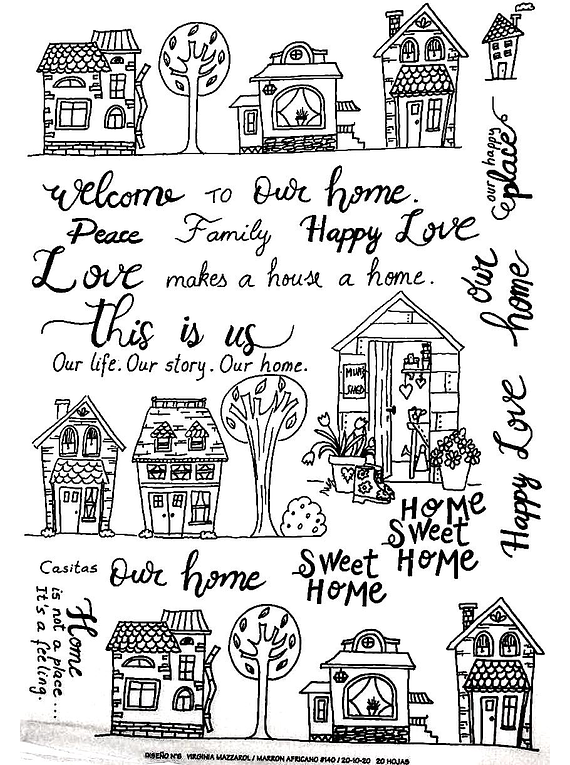 our happy
place
Welcome to Our home.
Peace Family Happy Love
Love makes a house a home.
Our
home
this is us
Our life. Our story. Our home.
MUM'S
SHED
Happy Love
HOME
Sweet
HOME
Casitas
Our home
Sweet
HOME
Home
is not a place...
It's a feeling.
DISEÑO N°6 VIRGINIA MAZZAROL / MARRON AFRICANO #140 / 20-10-20 20 HOJAS